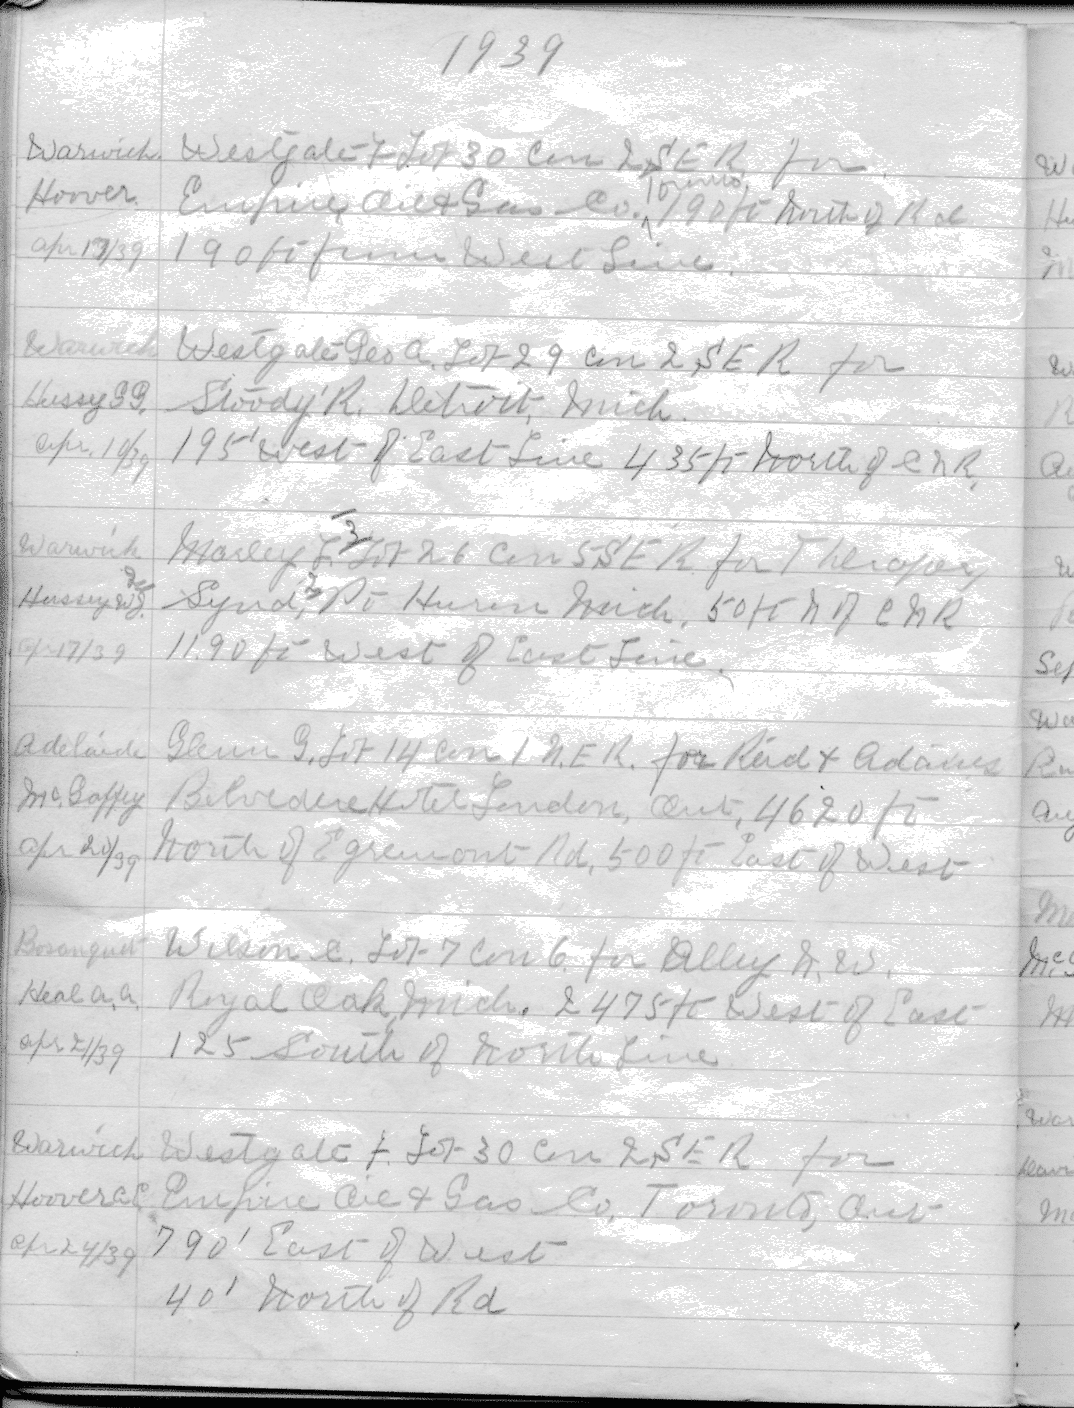 1939
Warwick Westgate F. Lot 30 Con 2 S E R for
Hoover Empire Oil & Gas Co. Toronto, 190 ft North of Rd
Apr 17/39 190 ft from West Line.
Warwick Westgate Geo A. Lot 29 Con 2 S E R for
Hussey G G. Stoody R. Detroit, Mich.
Apr. 10/39 195' West of East Line 435 ft North of C N R,
Warwick Morley F. Lot 26 Con 5 S E R for
Hussey Synd, Pt Huron Mich. 50 ft N of C N R
Apr 17/39 1190 ft West of East Line.
Adelaide Glenn G. Lot 14 Con 1 N. E R. for Reid & Adams
McGaffey Belvedere Hotel London, Ont, 4620 ft
Apr 20/39 North of Egremont Rd, 500 ft East of West
Bosanquet Wilson C. Lot 7 Con 6. for Alley N. W.
Heal A. A. Royal Oak, Mich. 2475 ft West of East
Apr 21/39 125 South of North Line
Warwick Westgate F. Lot 30 Con 2 S E R for
Hoover C. C. Empire Oil & Gas Co, Toronto, Ont
Apr 24/39 790' East of West
40' North of Rd